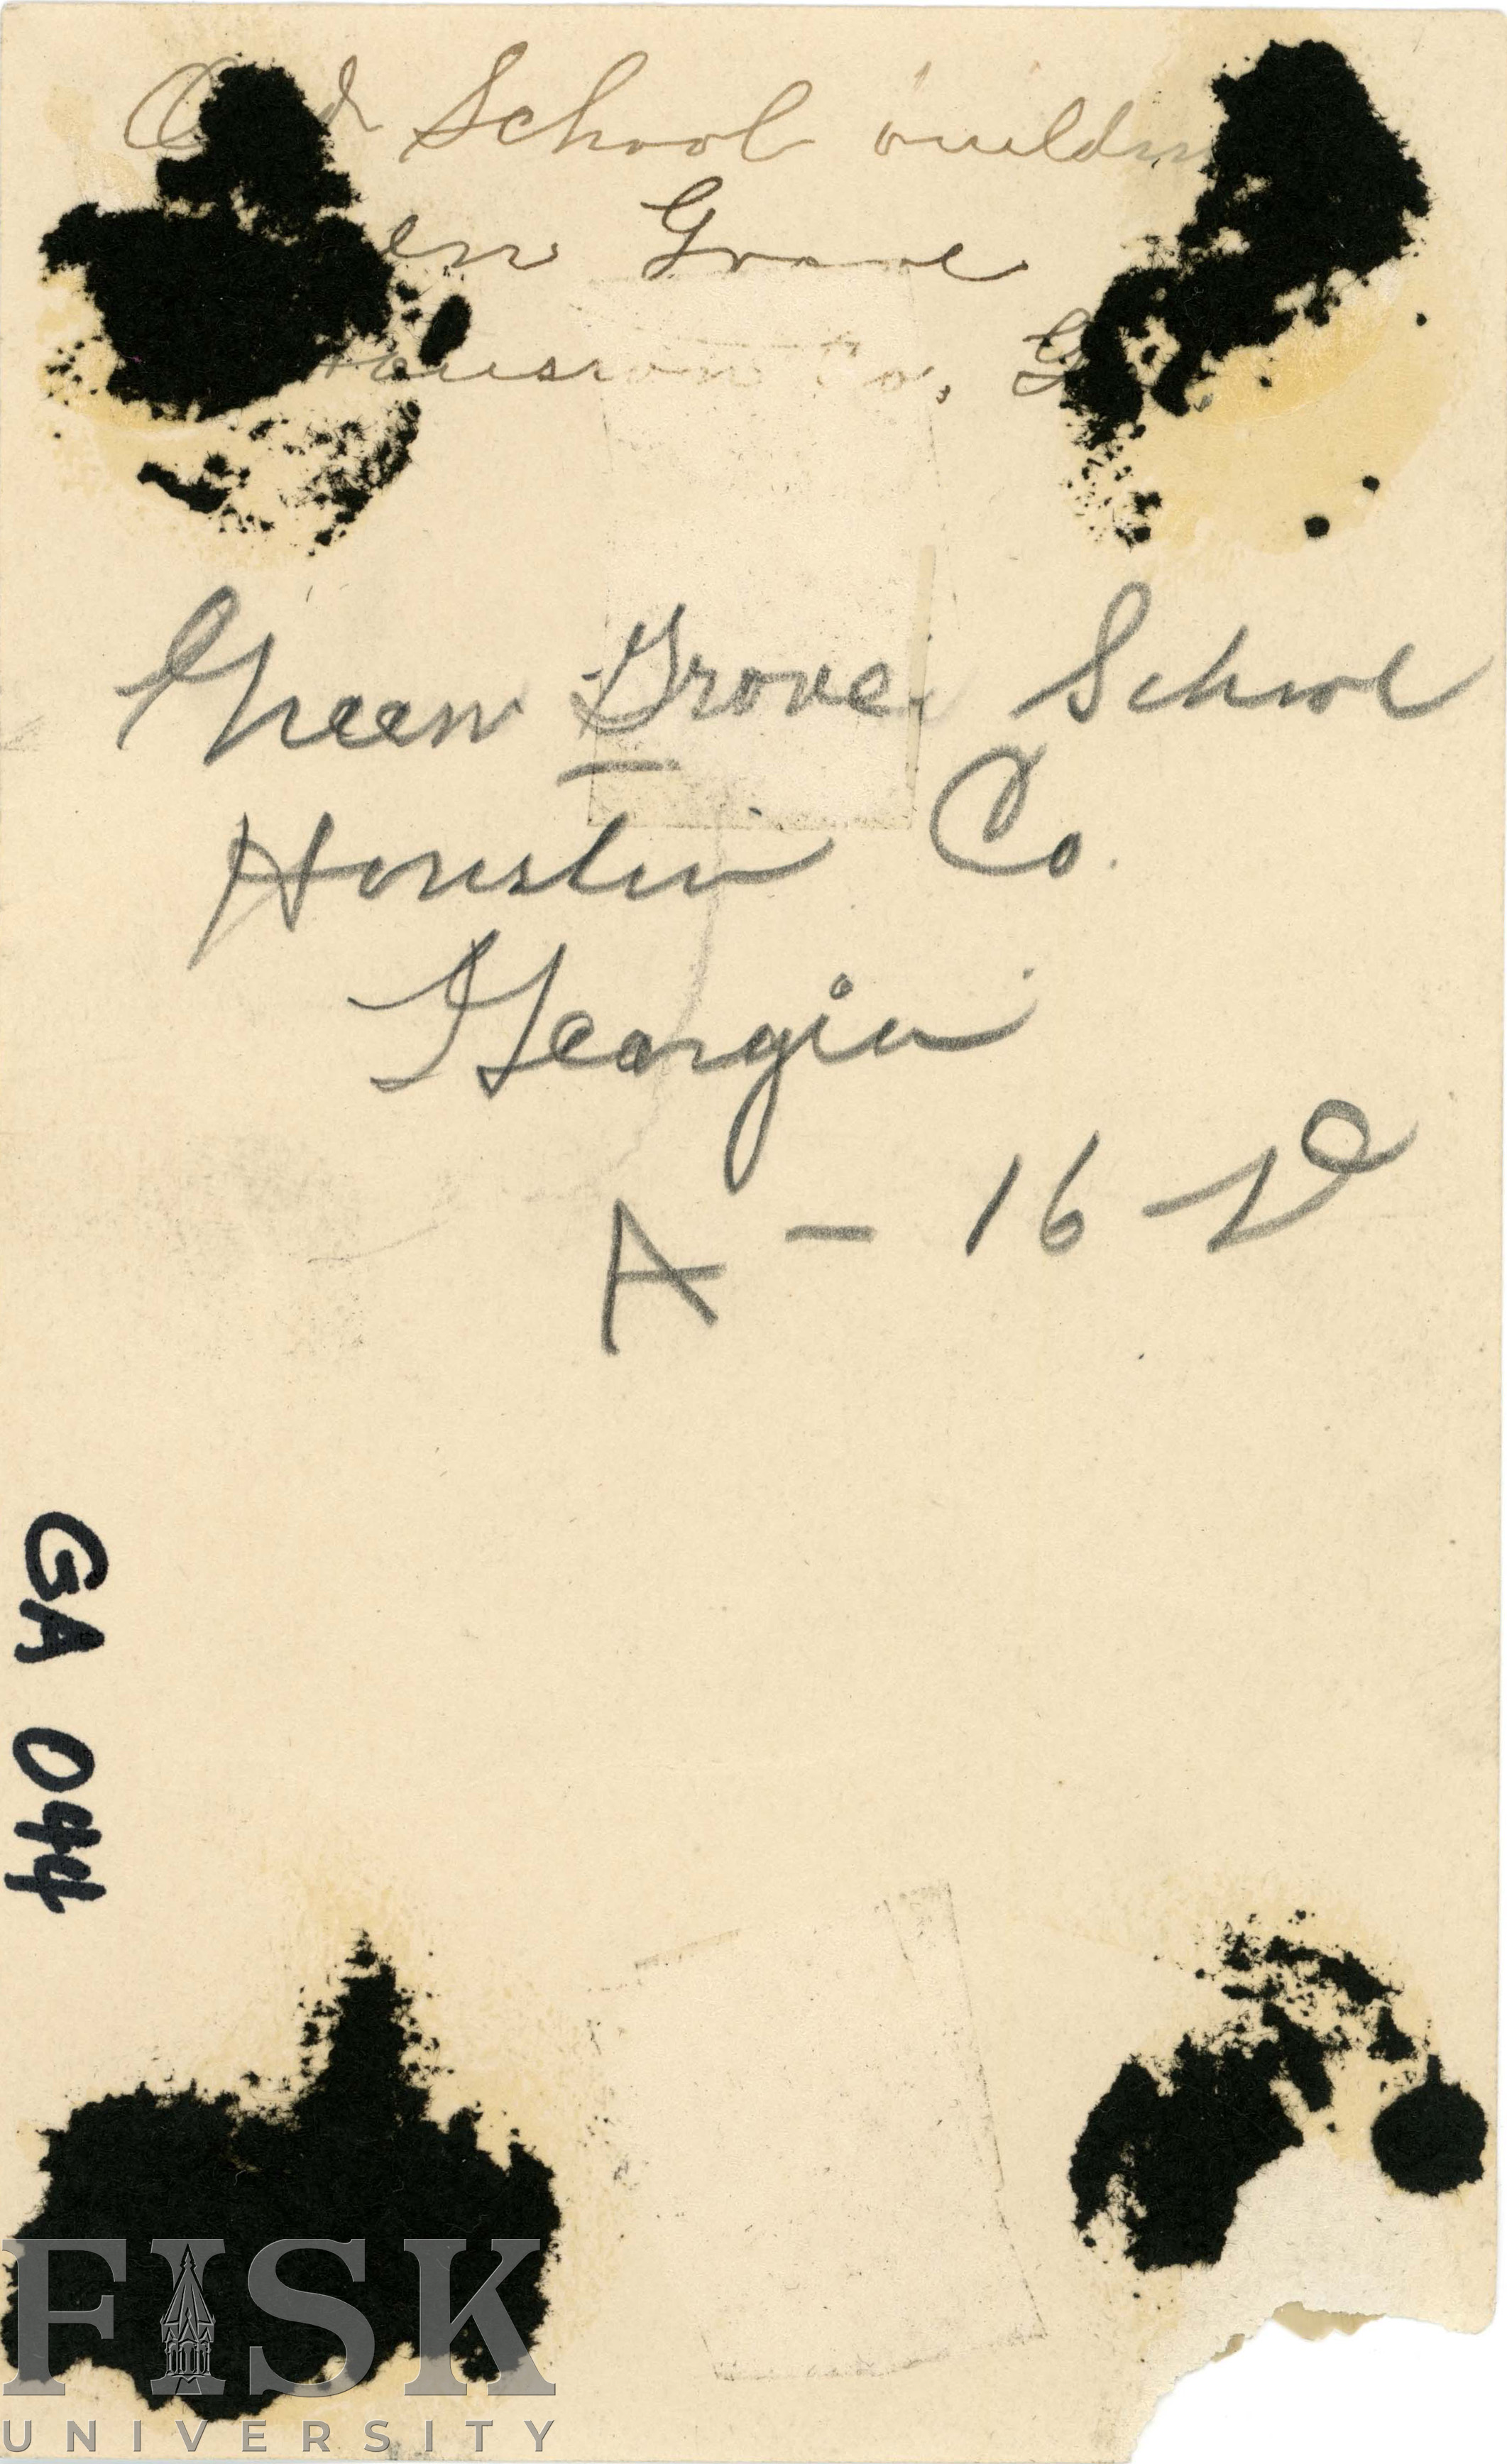 School buildin
en Grove
Houston Co, G
Green Grove School
Houston Co.
Georgia
A - 16
GA 044
FISK
UNIVERSITY